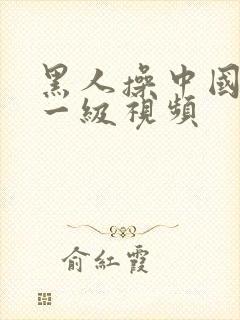 黑人操中國
一級視頻
俞紅霞